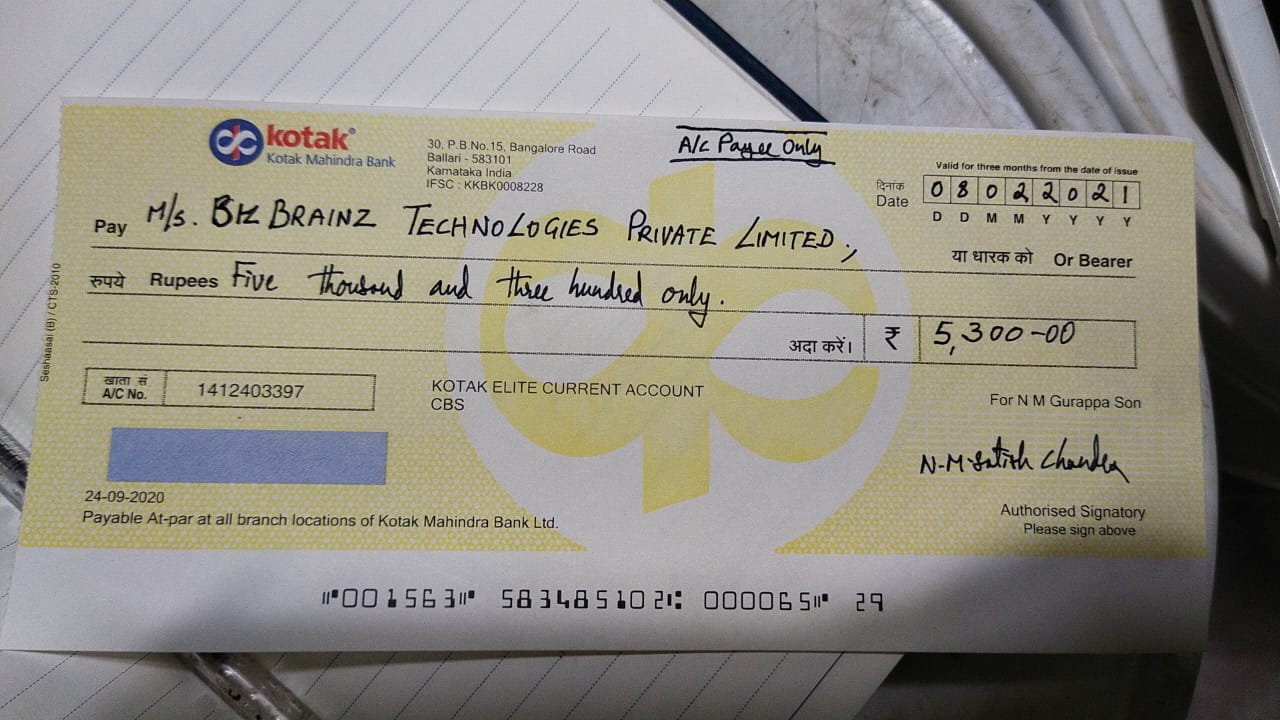 kotak®
Kotak Mahindra Bank
30, P.B.No.15, Bangalore Road
Ballari - 583101
Karnataka India
IFSC : KKBK0008228
A/c Payee Only
Valid for three months from the date of issue
दिनांक
Date
0 8 0 2 2 0 2 1
D D M M Y Y Y Y
Pay M/s. BIZ BRAINZ TECHNOLOGIES PRIVATE LIMITED.,
या धारक को Or Bearer
रुपये Rupees Five thousand and three hundred only.
अदा करें। ₹ 5,300-00
खाता सं
A/C No. 1412403397
KOTAK ELITE CURRENT ACCOUNT
CBS
For N M Gurappa Son
N-M-Satish Chandra
24-09-2020
Payable At-par at all branch locations of Kotak Mahindra Bank Ltd.
Authorised Signatory
Please sign above
Seshaasai (B) / CTS-2010
⑈001563⑈ 583485102⑆ 000065⑈ 29